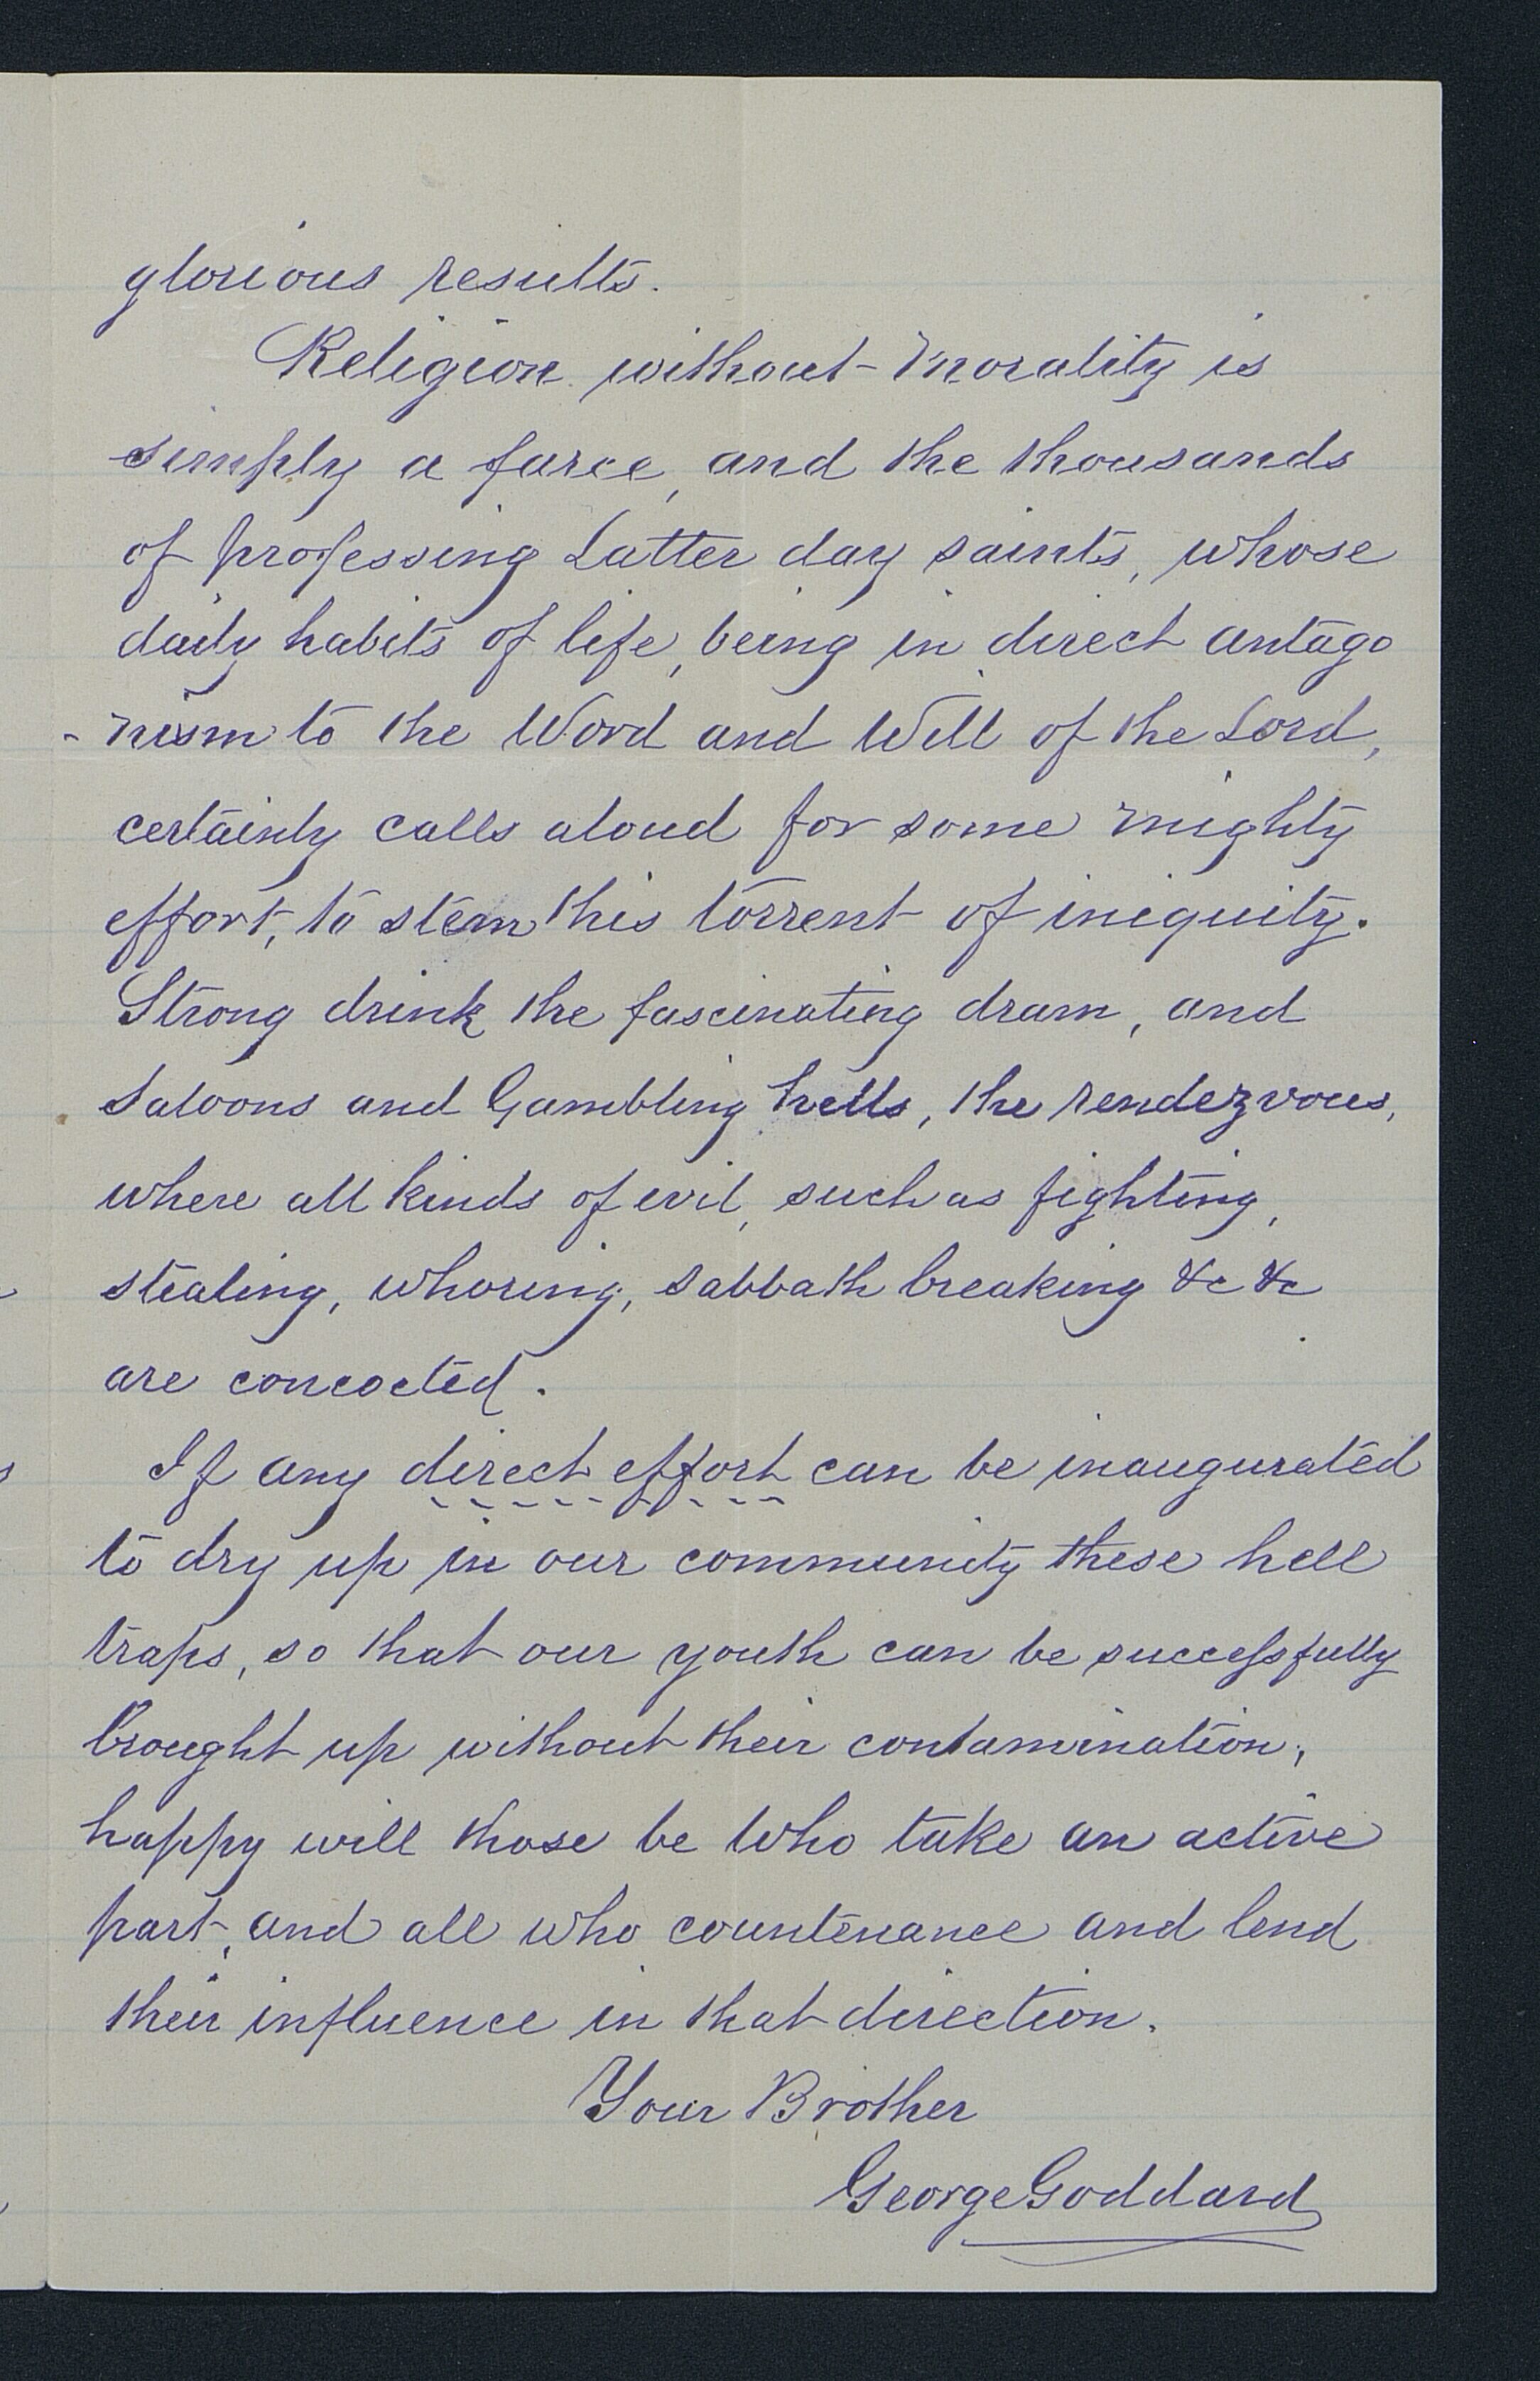 glorious results.
Religion without Morality is
simply a farce, and the thousands
of professing Latter day saints, whose
daily habits of life, being in direct antago
-nism to the Word and Will of the Lord,
certainly calls aloud for some mighty
effort, to stem this torrent of iniquity.
Strong drink the fascinating dram, and
Saloons and Gambling hells, the rendezvous,
where all kinds of evil, such as fighting,
stealing, whoring, Sabbath breaking &c &c
are concocted.
If any direct effort can be inaugurated
to dry up in our community these hell
traps, so that our youth can be successfully
brought up without their contamination,
happy will those be who take an active
part, and all who countenance and lend
their influence in that direction.
Your Brother
George Goddard